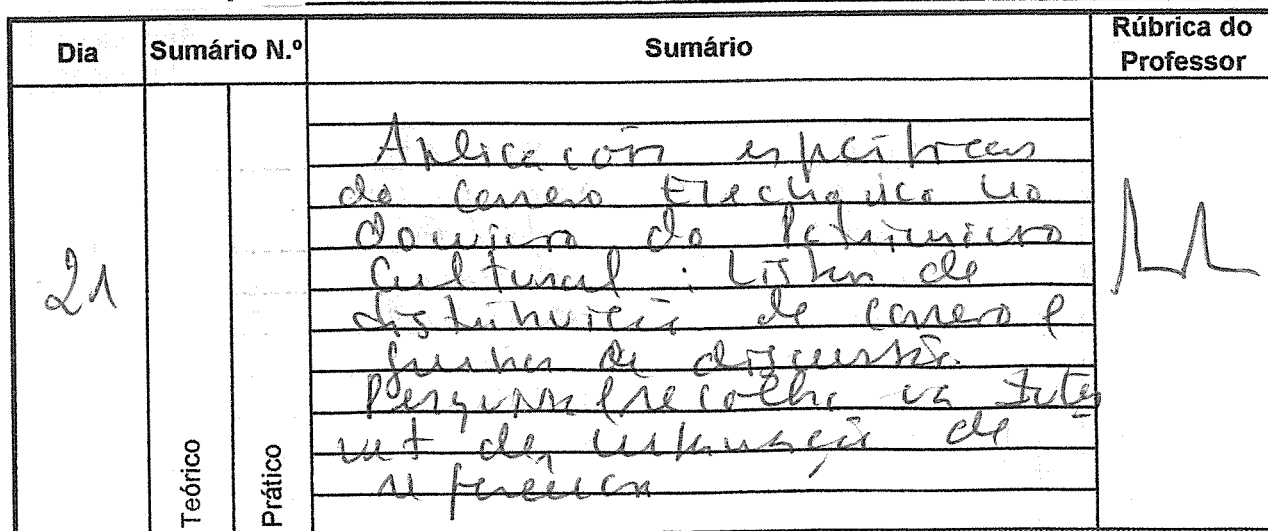 Dia Sumário N.º Sumário Rúbrica do Professor
21
Teórico
Prático
Aplicações específicas
do correio Electrónico no
domínio do Património
Cultural: Listas de
distribuição de correio e
de discussão.
Pesquisa e recolha na Inter
net de informação de
referência